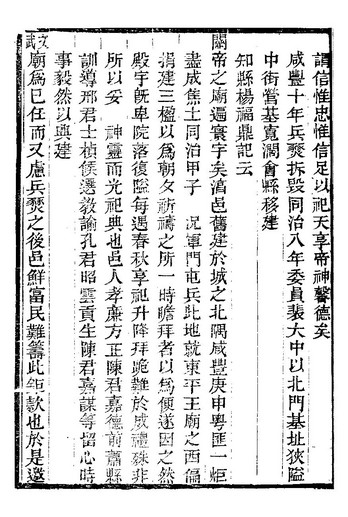 謂信惟忠惟信足以祀天享帝神馨德矣
咸豐十年兵燹拆毀同治八年委員裴大中以北門基址狹隘
中街營基寬濶會縣移建
知縣楊福鼎記云
關帝之廟遍寰宇矣滆邑舊建於城之北隅咸豐庚申粤匪一炬
盡成焦土同治甲子 況軍門屯兵此地就東平王廟之西偏
搆建三楹以為朝夕祈禱之所一時瞻拜者以為便遂因之然
殿宇既卑院落復隘每遇春秋享祀升降拜跪難於成禮殊非
所以妥 神靈而光祀典也邑人孝廉方正陳君嘉德前蕭縣
訓導邢君士楨候選教諭孔君昭雲貢生陳君嘉謀等留心時
事毅然以興建
文武廟為巳任而又慮兵燹之後邑鮮富民難籌此鉅款也於是邀